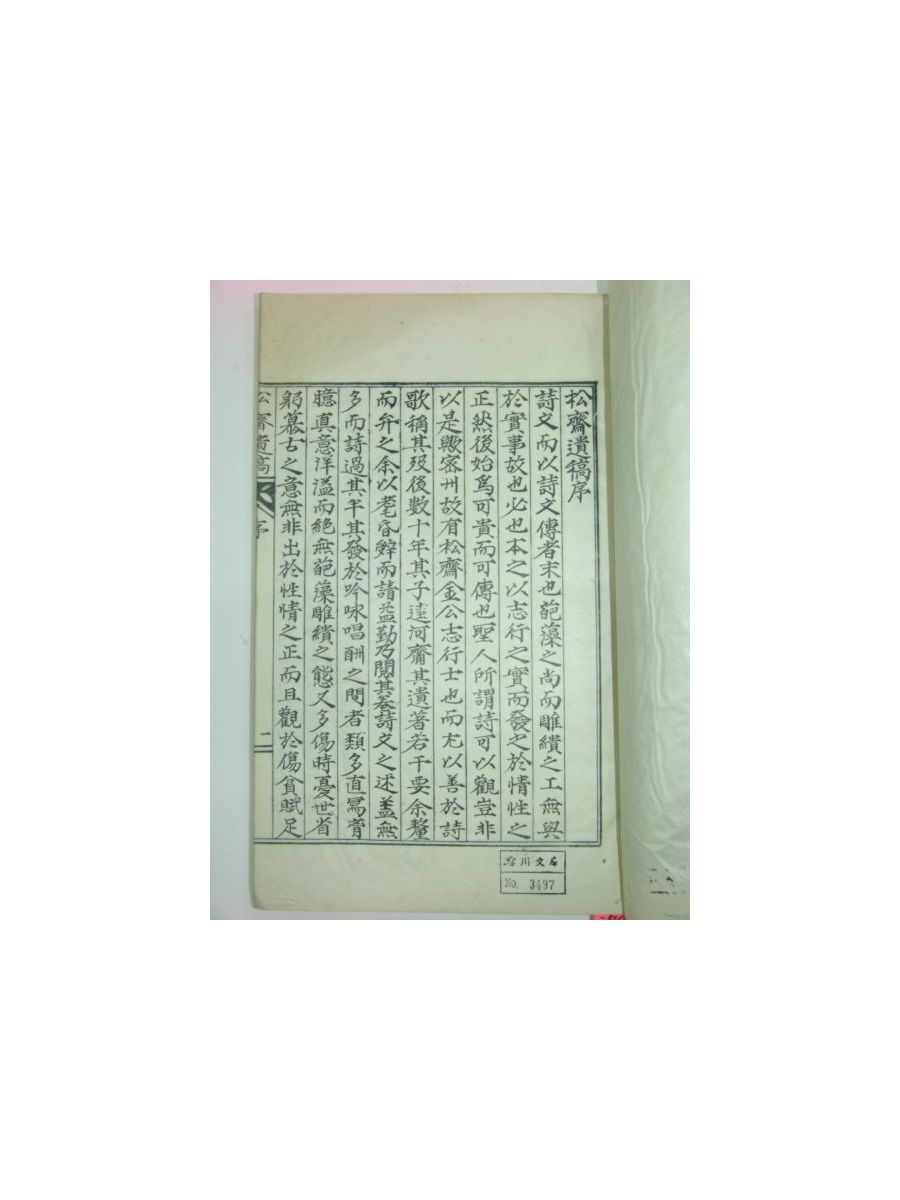 松齋遺稿序
詩文而以詩文傳者末也葩藻之尚而雕繢之工無與
於實事故也必也本之以志行之實而發之於情性之
正然後始爲可貴而可傳也聖人所謂詩可以觀豈非
以是歟密州故有松齋金公志行士也而尤以善於詩
歌稱其歿後數十年其子達河齎其遺著若干要余釐
而弁之余以耄昏辭而請益勤乃閱其卷詩文之述盖無
多而詩過其半其發於吟咏唱酬之間者類多直寫胷
臆真意洋溢而絕無葩藻雕繢之態又多傷時憂世省
躬慕古之意無非出於性情之正而且觀於傷貧賦足
松齋遺稿 序 一
川文庫
No. 3497